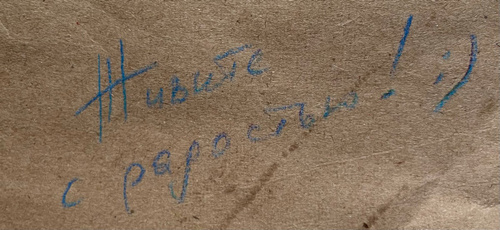 Живите
с радостью! :)